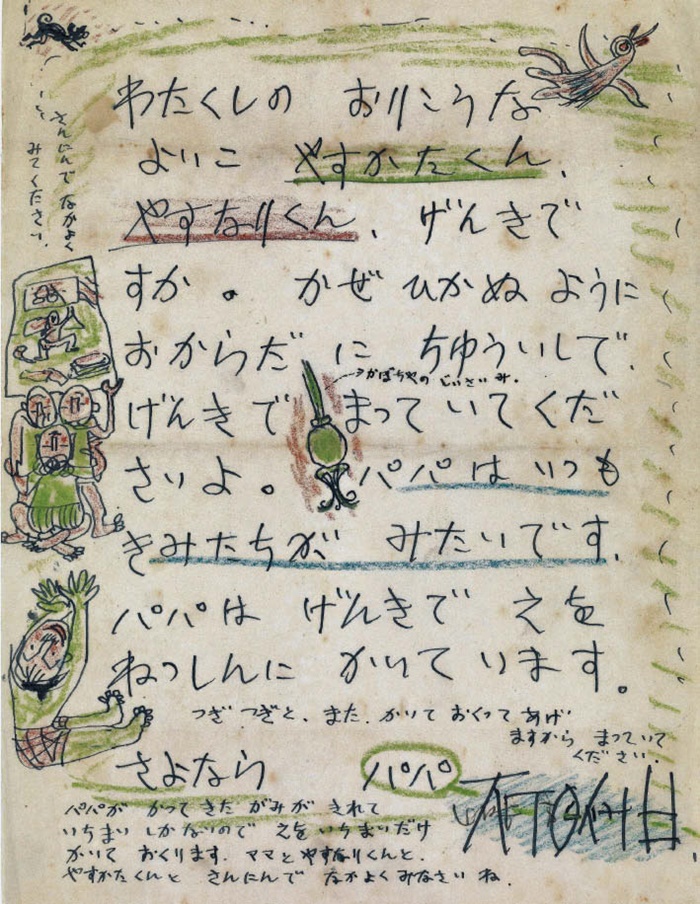 わたくしの おりこうな
よいこ やすかたくん、
やすなりくん、げんきで
すか。 かぜ ひかぬ ように
おからだ に ちゆういしで、
げんき で まって いて くだ
さいよ。 パパは いつも
きみたちが みたいです、
パパは げんきで えを
ねつしんに かいて います。
つぎ つぎと、また、かいて おくって あげ
ますから まっていて
ください。
さよなら パパ
パパが かって きた がみが きれて
いちまい しかないので えを いちまいだけ
かいて おくります、ママと やすなりくんと、
やすかたくんと さんにんで なかよくみなさい ね、
さんにんで なかよく
みてください、